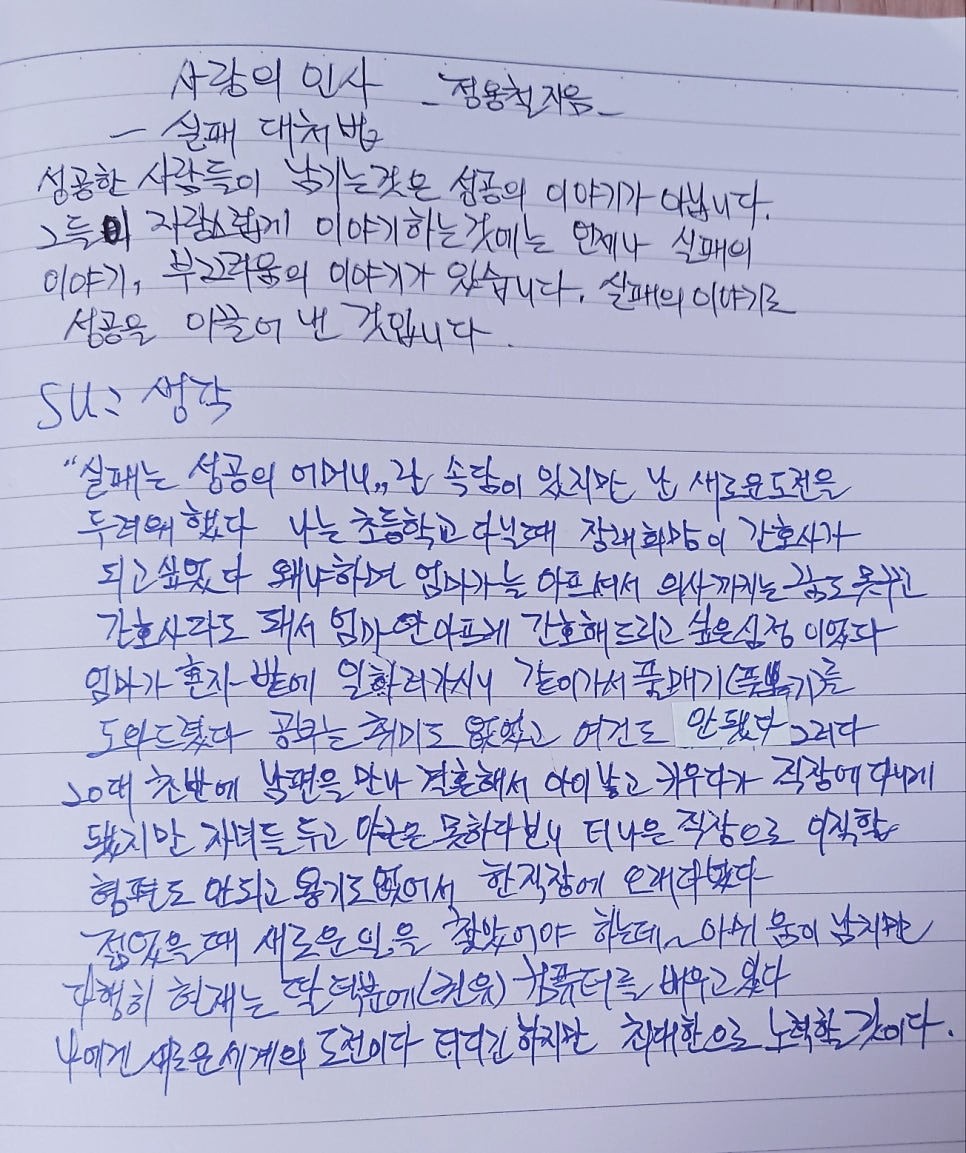 사랑의 인사 - 정용철 지음 -
- 실패 대처법
성공한 사람들이 남기는것은 성공의 이야기가 아닙니다.
그들이 자랑스럽게 이야기하는것에는 언제나 실패의
이야기, 부끄러움의 이야기가 있습니다. 실패의 이야기로
성공을 이끌어 낸 것입니다.
SU: 생각
"실패는 성공의 어머니" 란 속담이 있지만 난 새로운도전을
두려워 했다 나는 초등학교 다닐때 장래희망이 간호사가
되고싶었다 왜냐하면 엄마가 늘 아프셔서 의사까지는 꿈도 못꾸고
간호사라도 돼서 엄마 안아프게 간호해드리고 싶은심정 이었다
엄마가 혼자 밭에 일하러가시니 같이가서 풀매기(풀뽑기)를
도와드렸다 공부는 취미도 없었고 여건도 안됐다 그러다
20대 초반에 남편을 만나 결혼해서 아이 낳고 키우다가 직장에 다니게
됐지만 자녀들 두고 야근은 못하다보니 더 나은 직장으로 이직할
형편도 안되고 용기도 없어서 한직장에 오래다녔다
젊었을 때 새로운일을 찾았어야 하는데~ 아쉬움이 남지만
다행히 현재는 딸 덕분에(권유) 컴퓨터를 배우고 있다
나에겐 새로운세계의 도전이다 더디긴 하지만 최대한으로 노력할 것이다.